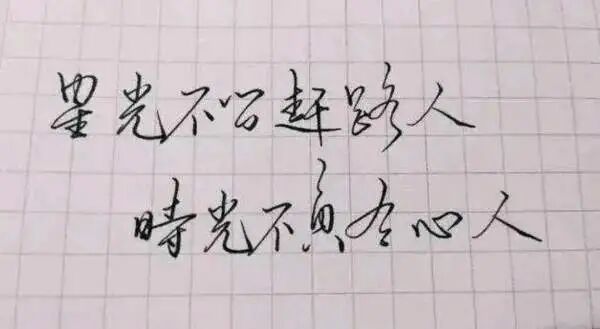 星光不问赶路人
時光不负有心人